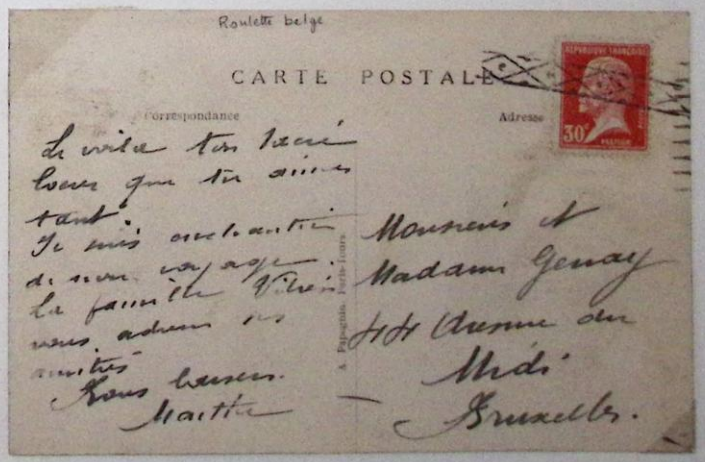 Roulette belge
CARTE POSTALE
Correspondance
Adresse
REPUBLIQUE FRANÇAISE
30c
PASTEUR
Le voila ton Sacré
Coeur que tu aimes
tant
Je suis enchantée
de mon voyage.
La famille
vous adresse ses
amitiés
Bons baisers.
Marthe
A. Papeghin, Paris-Tours
Monsieur et
Madame Genay
44 Avenue du
Midi
Bruxelles.